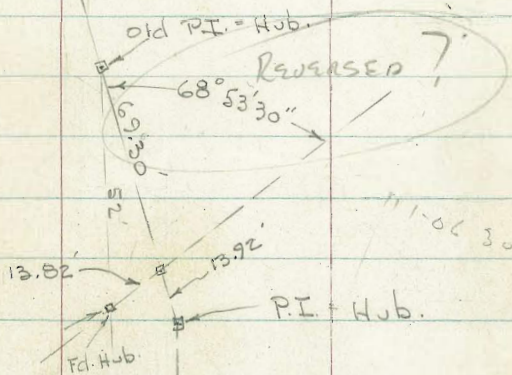 Old P.I. = Hub.
REVERSED ?
68° 53' 30"
69.30'
52'
13.82'
13.92'
P.I. = Hub.
Fd. Hub.